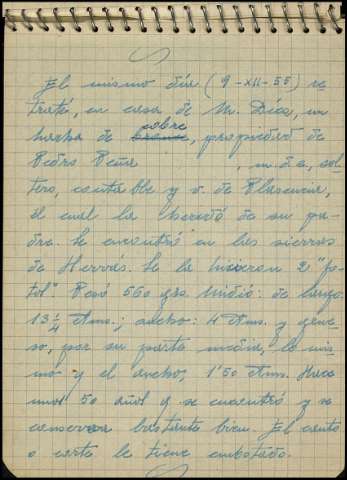 El mismo día (9-XII-55) re-
traté, en casa de M. Díaz, un
hacha de bronce cobre, propiedad de
Pedro Peña , m. de e, sol-
tero, contable y v. de Plasencia,
el cual la heredó de su pa-
dre. Se encontró en las sierras
de Hervás. Se la hicieron 2 "fo-
tos". Pesó 560 grs. Midió: de largo
13 1/4 ctms.; ancho: 4 ctms. y grue-
so, por su parte media, lo mis-
mo y el ancho, 1'50 ctms. Hace
unos 50 años q se encontró y se
conserva bastante bien. El canto
o corte le tiene embotado.